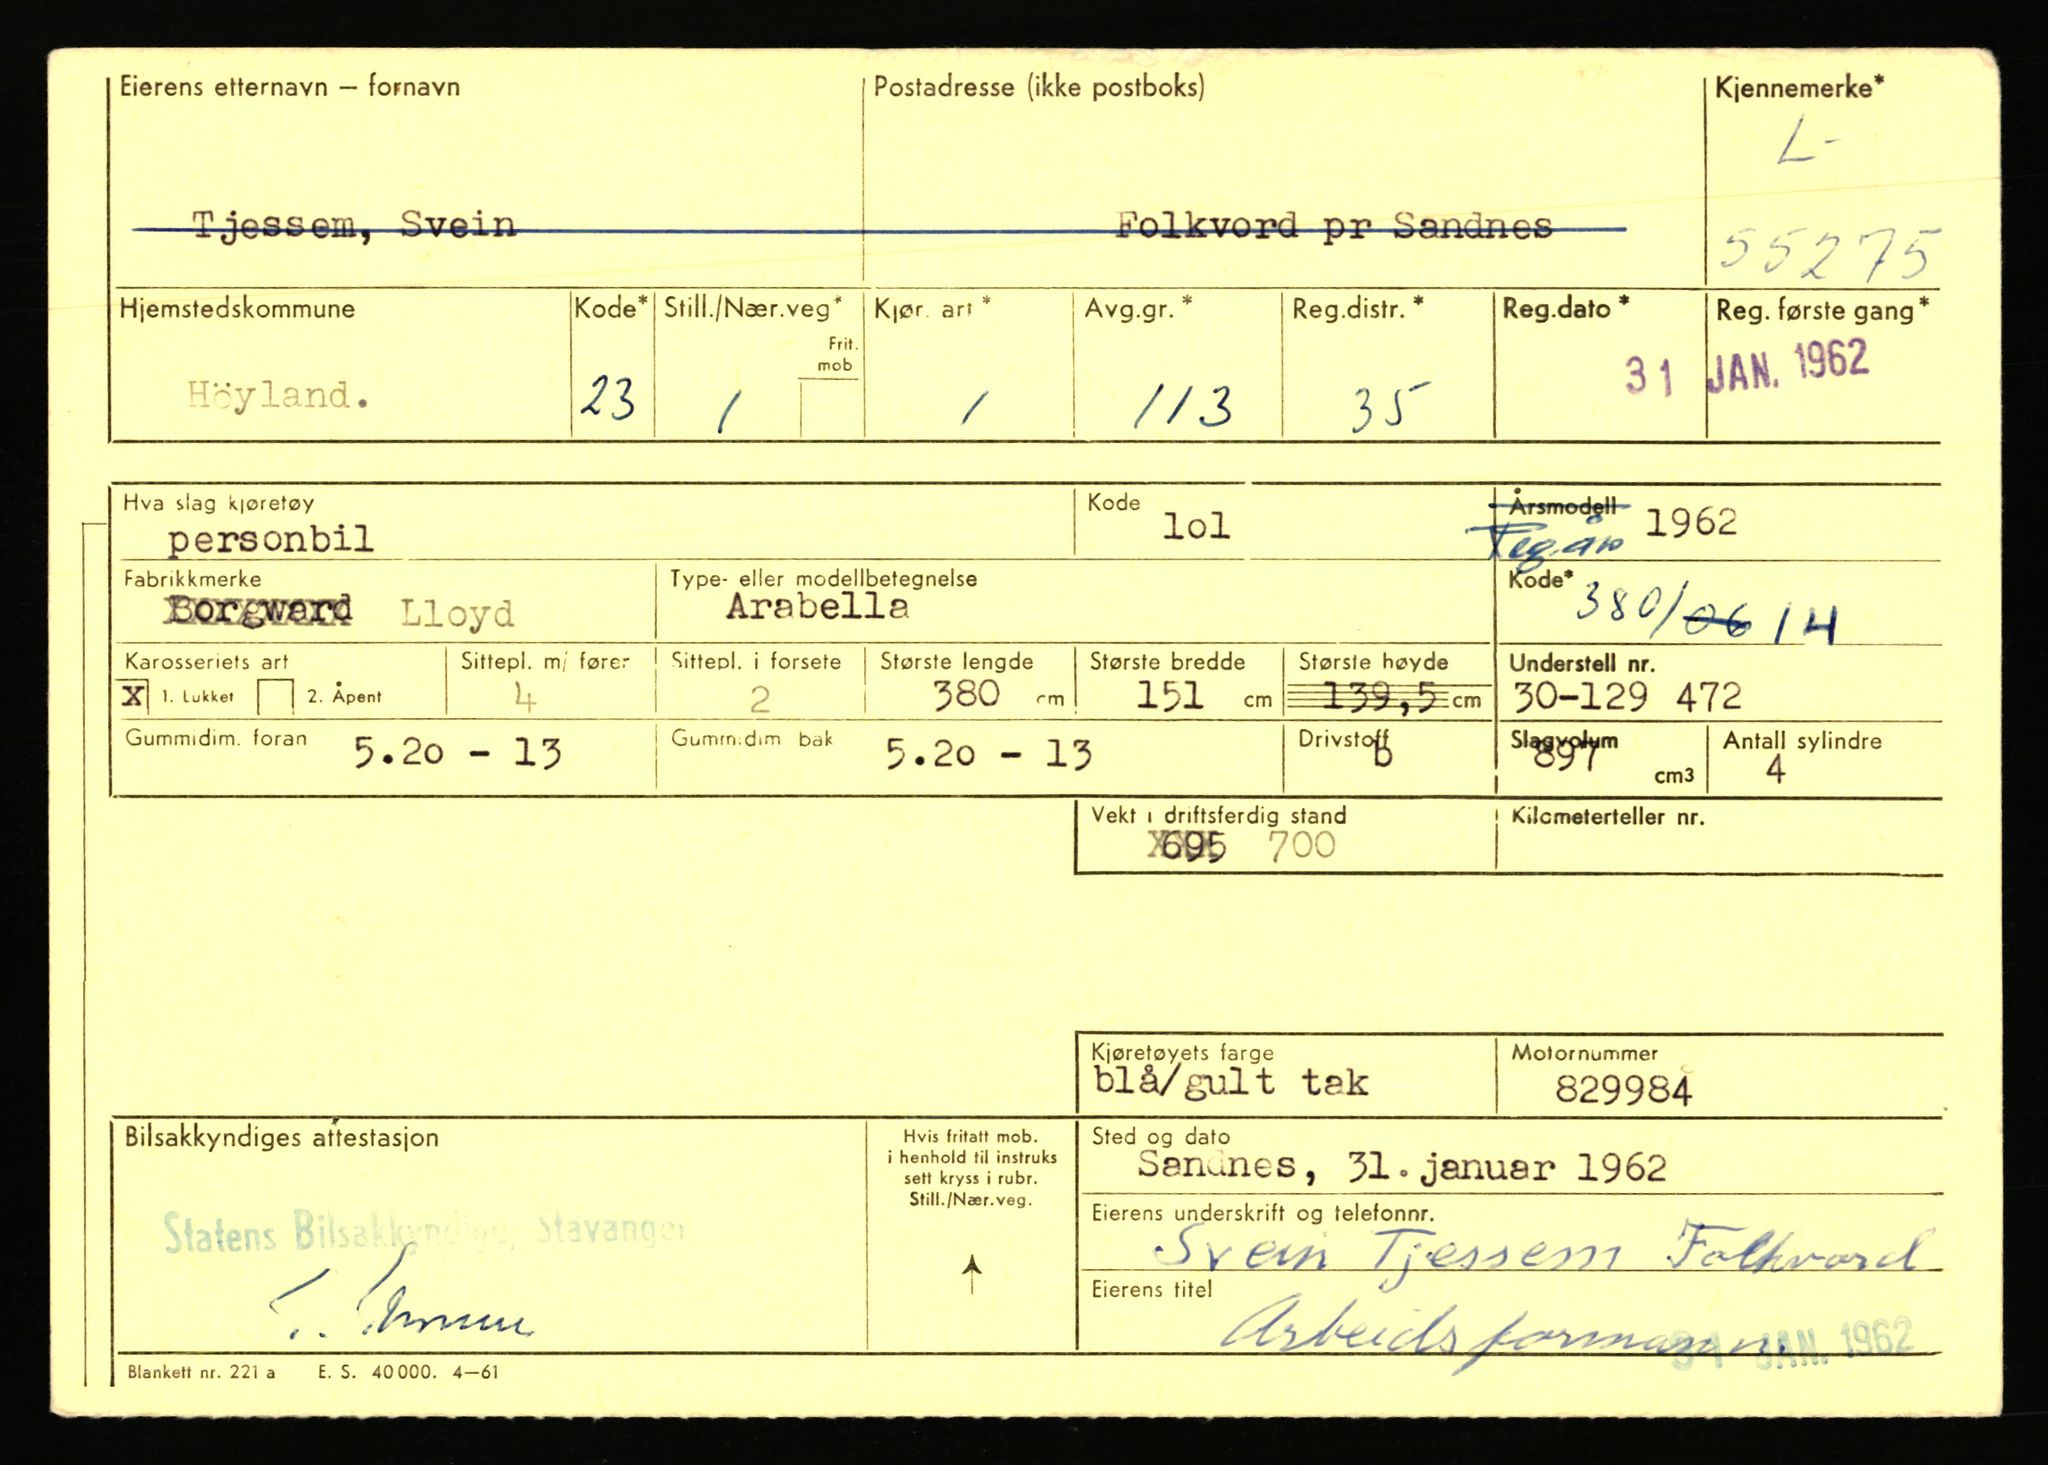 Eierens etternavn – fornavn Postadresse (ikke postboks) Kjennemerke*
L-
Tjessem, Svein Folkvord pr Sandnes 55275
Hjemstedskommune Kode* Still./Nær.veg* Kjør. art * Avg.gr. * Reg.distr. * Reg.dato * Reg. første gang*
Frit. mob
Höyland. 23 1 1 113 35 31 JAN. 1962
Hva slag kjøretøy Kode Årsmodell
personbil lol 1962
Reg.år
Fabrikkmerke Type- eller modellbetegnelse Kode*
Borgward Lloyd Arabella 380/06 14
Karosseriets art Sittepl. m/ fører Sittepl. i forsete Største lengde Største bredde Største høyde Understell nr.
X 1. Lukket 2. Åpent 4 2 380 cm 151 cm 139,5 cm 30-129 472
Gummidim. foran Gummidim bak Drivstoff Slagvolum Antall sylindre
5.2o - 13 5.2o - 13 b 897 cm3 4
Vekt i driftsferdig stand Kilometerteller nr.
695 700
Kjøretøyets farge Motornummer
blå/gult tak 829984
Bilsakkyndiges attestasjon Hvis fritatt mob. Sted og dato
i henhold til instruks Sandnes, 31. januar 1962
sett kryss i rubr.
Still./Nær.veg.
Eierens underskrift og telefonnr.
Statens Bilsakkyndige, Stavanger Svein Tjessem Folkvord
Eierens titel
Arbeidsformann.
31 JAN. 1962
Blankett nr. 221 a E. S. 40 000. 4–61